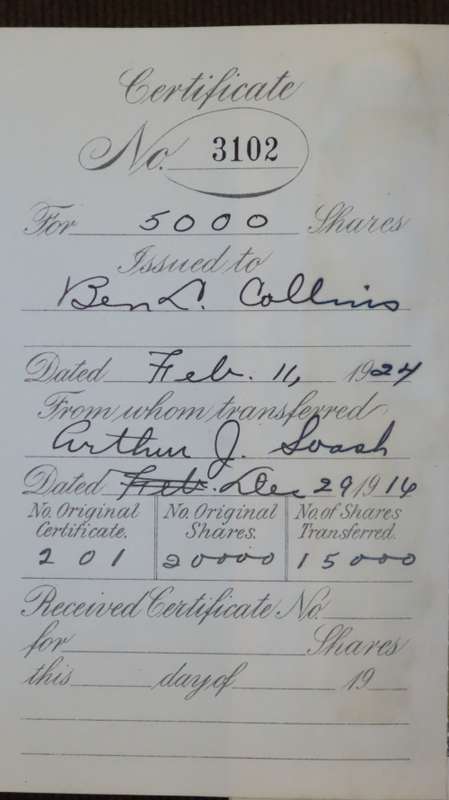 Certificate
No. 3102
For 5000 Shares
Issued to
Ben L. Collins
Dated Feb. 11, 1924
From whom transferred
Arthur J. Soash
Dated Feb. Dec 29 1916
No. Original Certificate. No. Original Shares. No. of Shares Transferred.
201 20000 15000
Received Certificate No.
for Shares
this day of 19